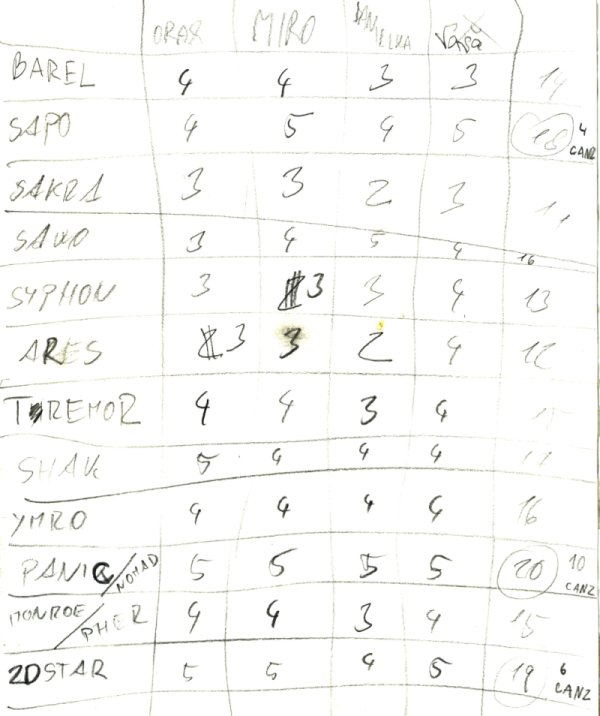 ORAX MIRO
BAREL 4 4 3 3 14
SAPO 4 5 4 5 18 4 CANZ
SAKRA 3 3 2 3 11
SAWO 3 4 5 4 16
SYPHON 3 3 3 4 13
ARES 3 3 2 4 12
TREMOR 4 4 3 4 15
SHAVE 5 4 4 4 17
YMRO 4 4 4 4 16
PANIC/NOMAD 5 5 5 5 20 10 CANZ
MONROE/PHER 4 4 3 4 15
2DSTAR 5 5 4 5 19 6 CANZ